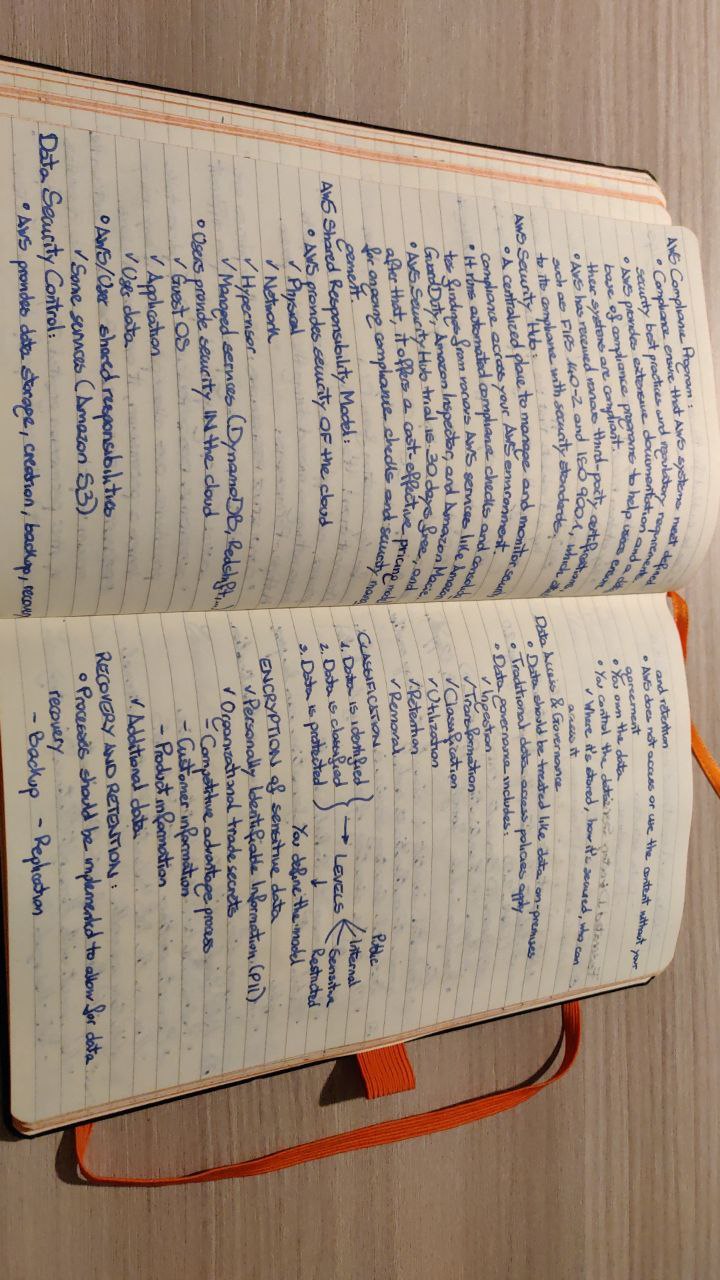 AWS Compliance Program:
• Compliance ensure that AWS systems meet
security best practices and regulatory requirements
• AWS provides extensive documentation and a
base of compliance programs to help users ensure
their systems are compliant.
• AWS has received various third-party certifications
such as FIPS 140-2 and ISO 9001, which
to its compliance with security standards.
AWS Security Hub:
• A centralized place to manage and monitor
compliance across your AWS environment
• It runs automated compliance checks and
findings from various AWS services like
GuardDuty, Amazon Inspector, and Amazon Macie
• AWS Security Hub trial is 30 days free, and
after that, it offers a cost-effective pricing
for ongoing compliance checks and security
gement.
AWS Shared Responsibility Model:
• AWS provides security OF the cloud
✓ Physical
✓ Network
✓ Hypervisor
✓ Managed services (DynamoDB, Redshift, ...)
• Users provide security IN the cloud
✓ Guest OS
✓ Application
✓ User data
• AWS/User shared responsibilities
✓ Some services (Amazon S3)
Data Security Control:
• AWS provides data storage, creation, backup,
and retention
• AWS does not access or use the content without your
agreement
• You own the data
• You control the data
✓ Where it's stored, how it's secured, who can
access it
Data Access & Governance
• Data should be treated like data on-premises
• Traditional data access policies apply
• Data governance includes:
✓ Ingestion
✓ Transformation
✓ Classification
✓ Utilization
✓ Retention
✓ Removal
CLASSIFICATION
1. Data is identified
2. Data is classified
3. Data is protected
→ LEVELS
Public
Internal
Sensitive
Restricted
You define the model
ENCRYPTION of sensitive data
✓ Personally Identifiable Information (PII)
✓ Organizational trade secrets
- Competitive advantage process
- Customer information
- Product information
✓ Additional data
RECOVERY AND RETENTION:
• Processes should be implemented to allow for data
recovery
- Backup - Replication